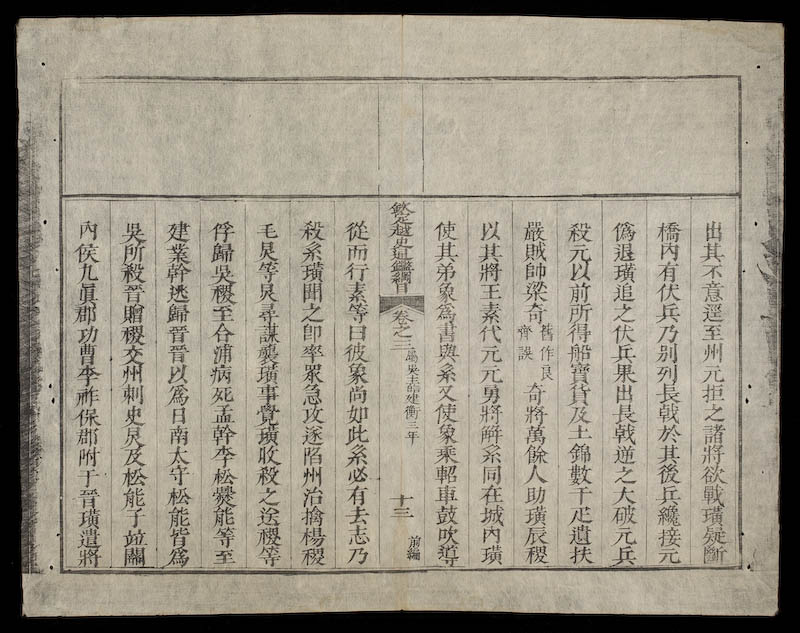 出其不意逕至州元拒之諸將欲戰璜疑斷
橋內有伏兵乃別列長戟於其後兵纔接元
偽退璜追之伏兵果出長戟逆之大破元兵
殺元以前所得船寶貨及土錦數千疋遺扶
嚴賊帥梁奇舊作良齊誤奇將萬餘人助璜辰稷
以其將王素代元元勇將解系同在城內璜
使其弟象為書與系又使象乘軺車鼓吹導
欽定越史通鑑綱目 卷之三 屬吳 吳主皓建衡三年 十三 前編
從而行素等曰彼象尚如此系必有去志乃
殺系璜聞之卽率眾急攻遂陷州治擒楊稷
毛炅等炅尋謀襲璜事覺璜收殺之送稷等
俘歸吳稷至合浦病死孟幹李松爨能等至
建業幹逃歸晉晉以爲日南太守松能皆爲
吳所殺晉贈稷交州刺史炅及松能子竝關
內侯九眞郡功曹李祚保郡附于晉璜遣將